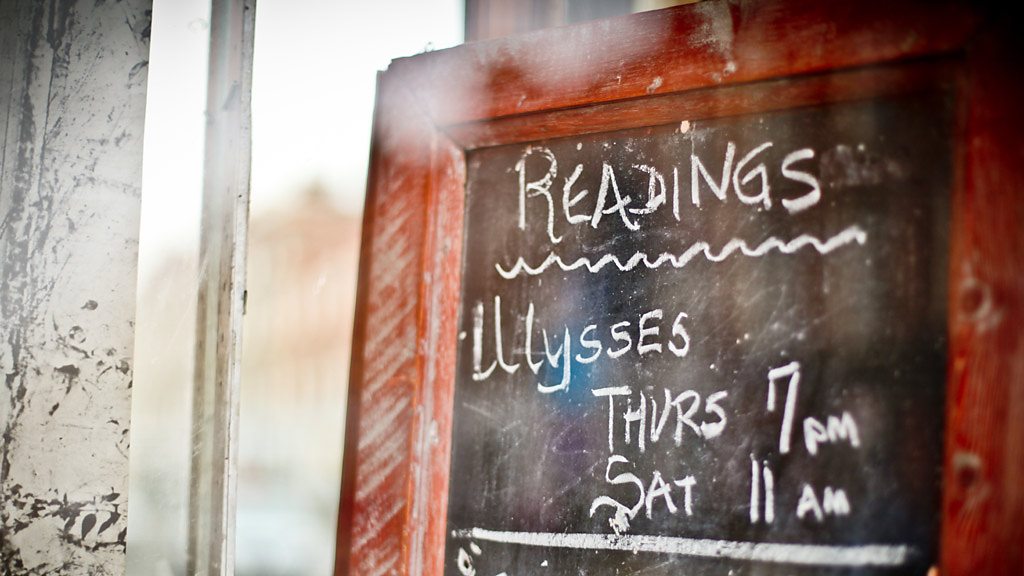 READINGS
Ulysses
THURS 7 pm
SAT 11 AM